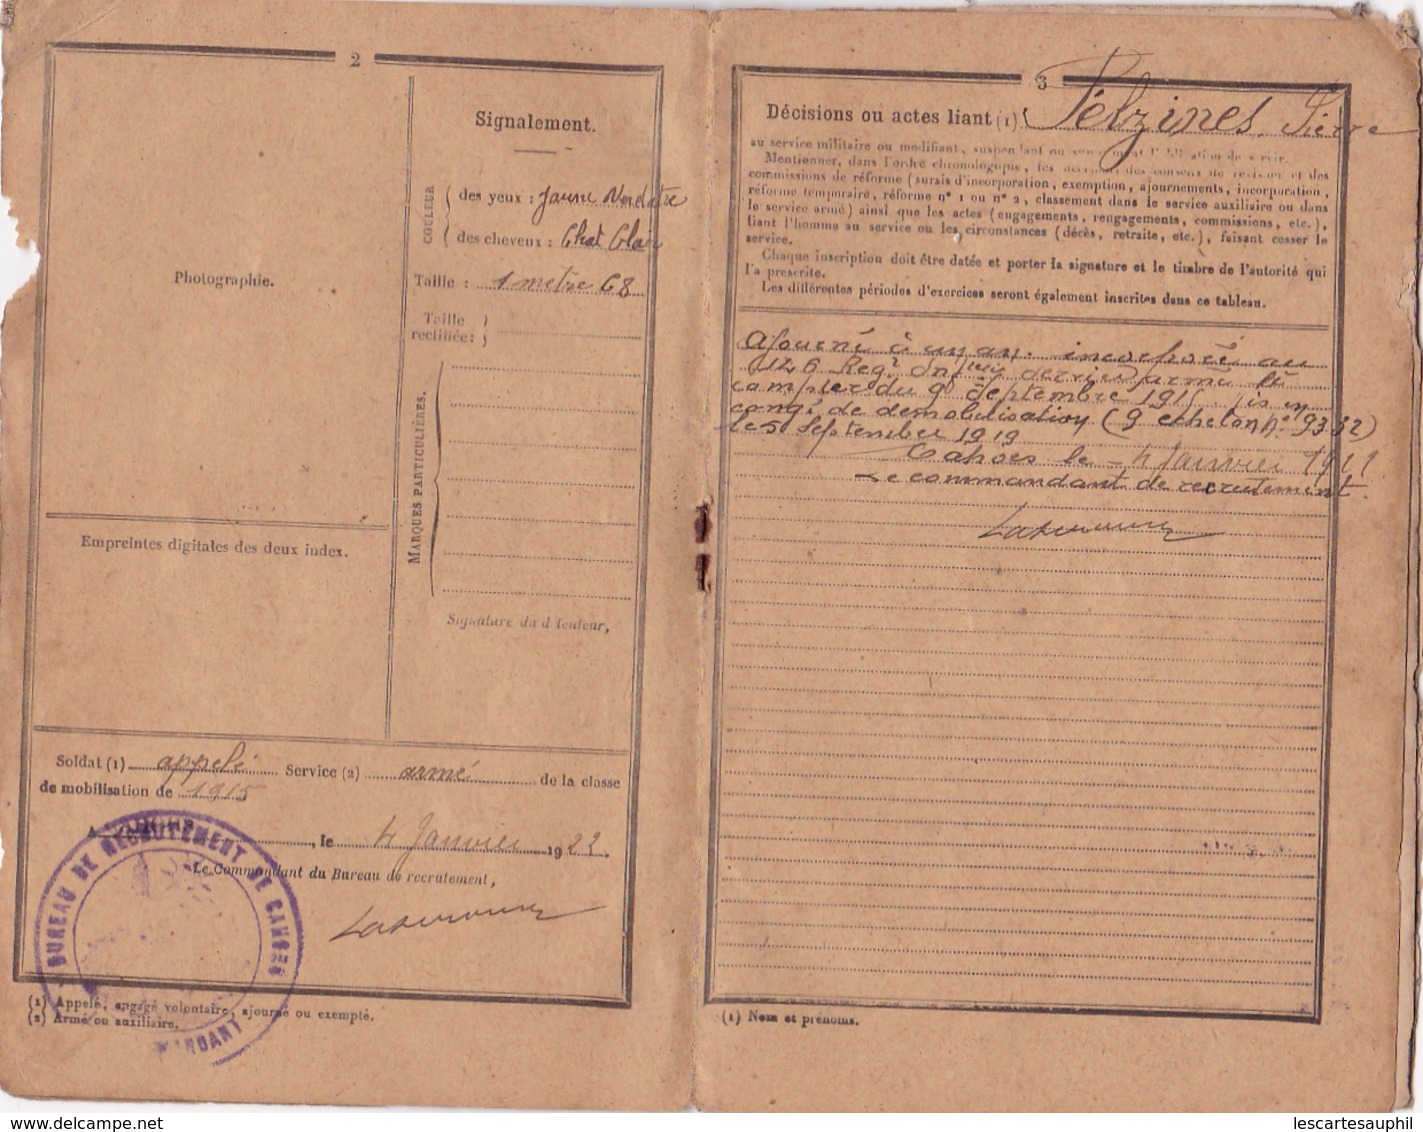 2
Signalement.
COULEUR
des yeux : Jaune Verdâtre
des cheveux : Chat Clair
Taille : 1 mètre 68
Taille
rectifiée :
MARQUES PARTICULIÈRES.
Photographie.
Empreintes digitales des deux index.
Signature du d tenteur,
Soldat (1) appelé Service (2) armé de la classe
de mobilisation de 1915
A , le 4 Janvier 1922.
Le Commandant du Bureau de recrutement,
BUREAU DE RECRUTEMENT DE CAHORS
(1) Appelé, engagé volontaire, ajourné ou exempté.
(2) Armé ou auxiliaire.
3
Décisions ou actes liant (1) Pelzines Pierre
au service militaire ou modifiant, suspendant ou
Mentionner, dans l'ordre chronologique, les décisions des conseils de révision et des
commissions de réforme (sursis d'incorporation, exemption, ajournements, incorporation,
réforme temporaire, réforme n° 1 ou n° 2, classement dans le service auxiliaire ou dans
le service armé) ainsi que les actes (engagements, rengagements, commissions, etc.),
liant l'homme au service ou les circonstances (décès, retraite, etc.), faisant cesser le
service.
Chaque inscription doit être datée et porter la signature et le timbre de l'autorité qui
l'a prescrite.
Les différentes périodes d'exercices seront également inscrites dans ce tableau.
Ajourné à un an. incorporé au
126 Regt Infie service armé à
compter du 9 Septembre 1915 mis en
congé de démobilisation (9 echelon No 9332)
le 5 Septembre 1919
Cahors le 4 Janvier
Le commandant de recrutement
(1) Nom et prénoms.
lescartesauphil